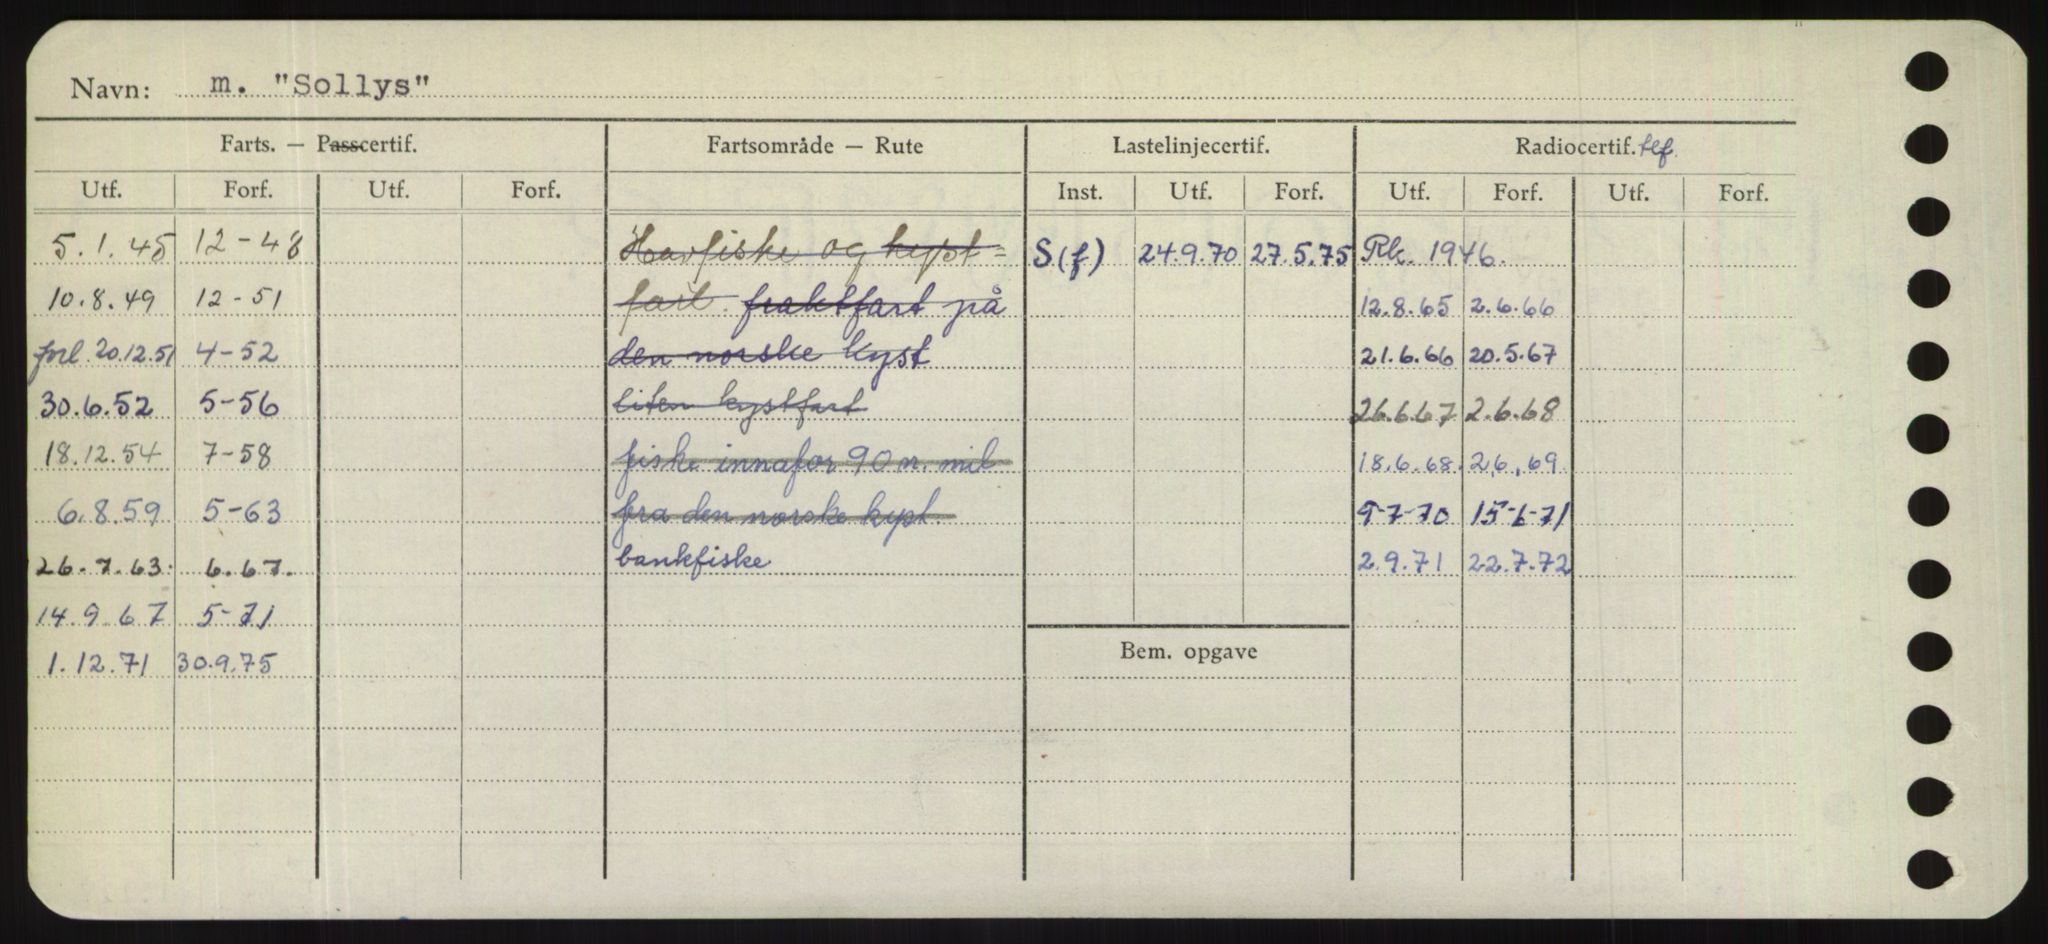 Navn: m. "Sollys"
Farts. — Passcertif. Fartsområde — Rute Lastelinjecertif. Radiocertif. tlf.
Utf. Forf. Utf. Forf. Inst. Utf. Forf. Utf. Forf. Utf. Forf.
5.1.45 12-48 Havfiske og kyst= S(f) 24.9.70 27.5.75 Rk. 1946.
10.8.49 12-51 fart. fraktfart på 12.8.65 2.6.66
forl. 20.12.51 4-52 den norske kyst 21.6.66 20.5.67
30.6.52 5-56 liten kystfart 26.6.67 2.6.68
18.12.54 7-58 fiske innafor 90 n. mil 18.6.68. 2.6.69.
6.8.59 5-63 fra den norske kyst. 9-7-70 15-6-71
26.7.63. 6.67. bankfiske 2.9.71 22.7.72
14.9.67 5-71
Bem. opgave
1.12.71 30.9.75